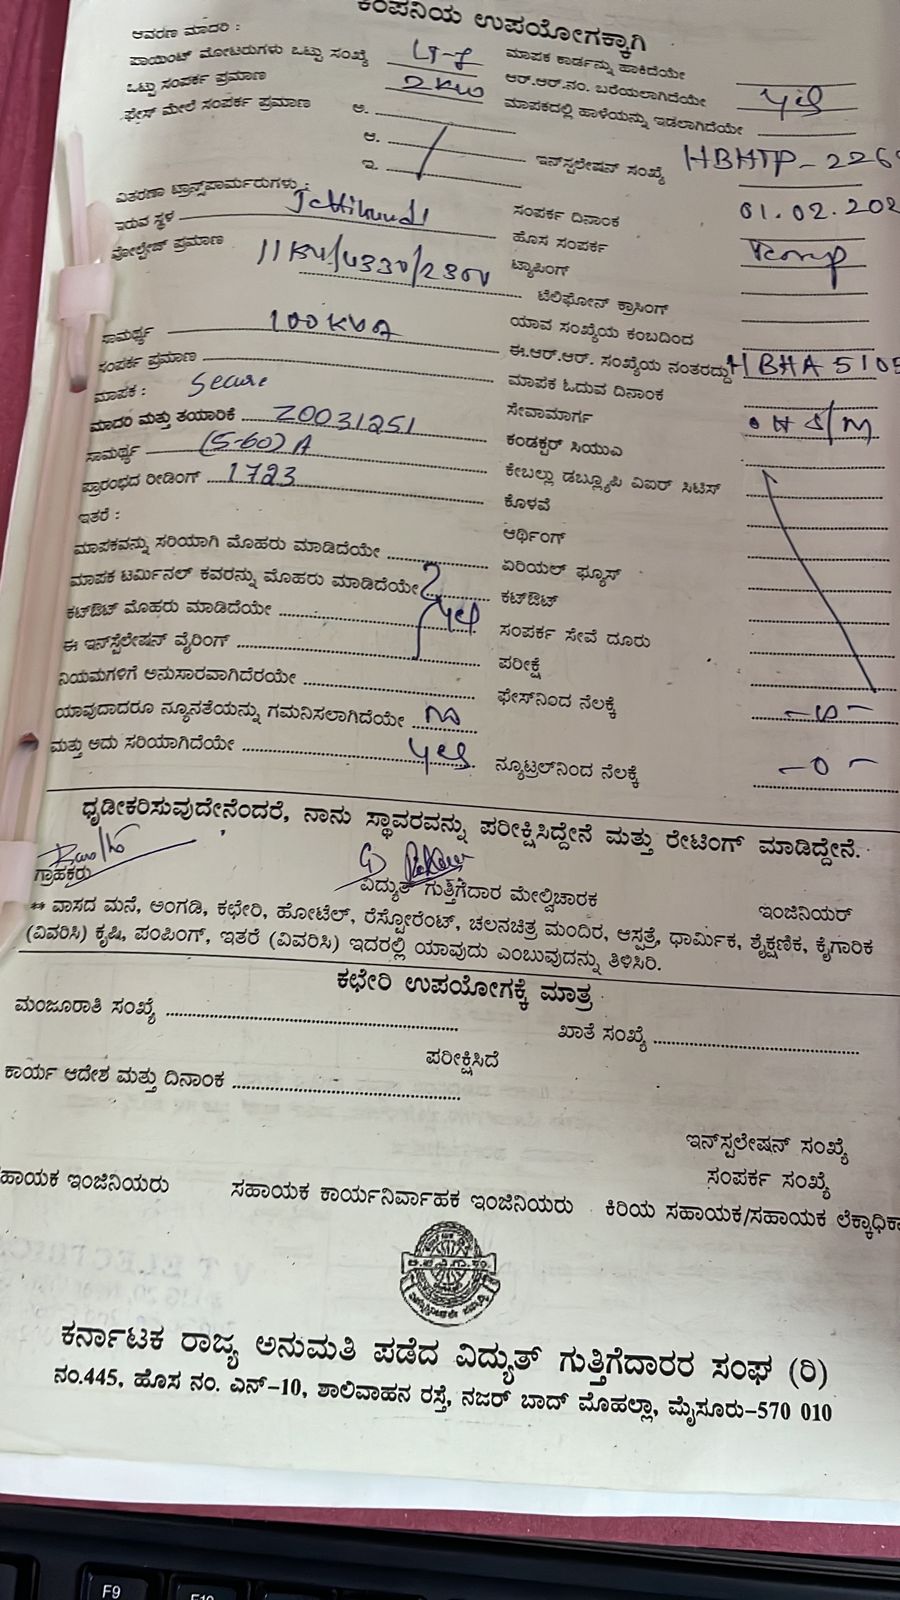 ಕಂಪನಿಯ ಉಪಯೋಗಕ್ಕಾಗಿ
ಆವರಣ ಮಾದರಿ :
ಪಾಯಿಂಟ್ ಮೋಟರುಗಳು ಒಟ್ಟು ಸಂಖ್ಯೆ LT-7 ಮಾಪಕ ಕಾರ್ಡನ್ನು ಹಾಕಿದೆಯೇ
ಒಟ್ಟು ಸಂಪರ್ಕ ಪ್ರಮಾಣ 2KW ಆರ್.ಆರ್.ನಂ. ಬರೆಯಲಾಗಿದೆಯೇ yes
ಫೇಸ್ ಮೇಲೆ ಸಂಪರ್ಕ ಪ್ರಮಾಣ ಅ. ಮಾಪಕದಲ್ಲಿ ಹಾಳೆಯನ್ನು ಇಡಲಾಗಿದೆಯೇ
ಆ.
ಇ. ಇನ್‌ಸ್ಪಲೇಷನ್ ಸಂಖ್ಯೆ HBHTP-226
ವಿತರಣಾ ಟ್ರಾನ್ಸ್‌ಪಾರ್ಮರುಗಳು :
ಇರುವ ಸ್ಥಳ ಸಂಪರ್ಕ ದಿನಾಂಕ 01.02.202
ವೋಲ್ಟೇಜ್ ಪ್ರಮಾಣ 11KV/4330/230V ಹೊಸ ಸಂಪರ್ಕ
ಟ್ಯಾಪಿಂಗ್
ಟೆಲಿಫೋನ್ ಕ್ರಾಸಿಂಗ್
ಸಾಮರ್ಥ್ಯ 100KVA ಯಾವ ಸಂಖ್ಯೆಯ ಕಂಬದಿಂದ
ಸಂಪರ್ಕ ಪ್ರಮಾಣ ಈ.ಆರ್.ಆರ್. ಸಂಖ್ಯೆಯ ನಂತರದ್ದು HBHA 5105
ಮಾಪಕ : Secure ಮಾಪಕ ಓದುವ ದಿನಾಂಕ
ಮಾದರಿ ಮತ್ತು ತಯಾರಿಕೆ 20031251 ಸೇವಾಮಾರ್ಗ
ಸಾಮರ್ಥ್ಯ (5-60) A ಕಂಡಕ್ಟರ್ ಸಿಯುಎ
ಪ್ರಾರಂಭದ ರೀಡಿಂಗ್ 1723 ಕೇಬಲ್ಲು ಡಬ್ಲ್ಯೂಪಿ ವಿಐರ್ ಸಿಟಿಸ್
ಇತರೆ : ಕೊಳವೆ
ಆರ್ಥಿಂಗ್
ಮಾಪಕವನ್ನು ಸರಿಯಾಗಿ ಮೊಹರು ಮಾಡಿದೆಯೇ ಏರಿಯಲ್ ಫ್ಯೂಸ್
ಮಾಪಕ ಟರ್ಮಿನಲ್ ಕವರನ್ನು ಮೊಹರು ಮಾಡಿದೆಯೇ ಕಟ್‌ಔಟ್
ಕಟ್‌ಔಟ್ ಮೊಹರು ಮಾಡಿದೆಯೇ yes ಸಂಪರ್ಕ ಸೇವೆ ದೂರು
ಈ ಇನ್‌ಸ್ಪೆಲೇಷನ್ ವೈರಿಂಗ್ ಪರೀಕ್ಷೆ
ನಿಯಮಗಳಿಗೆ ಅನುಸಾರವಾಗಿದೆರಯೇ ಫೇಸ್‌ನಿಂದ ನೆಲಕ್ಕೆ
ಯಾವುದಾದರೂ ನ್ಯೂನತೆಯನ್ನು ಗಮನಿಸಲಾಗಿದೆಯೇ
ಮತ್ತು ಅದು ಸರಿಯಾಗಿದೆಯೇ yes ನ್ಯೂಟ್ರಲ್‌ನಿಂದ ನೆಲಕ್ಕೆ -0-
ಧೃಡೀಕರಿಸುವುದೇನೆಂದರೆ, ನಾನು ಸ್ಥಾವರವನ್ನು ಪರೀಕ್ಷಿಸಿದ್ದೇನೆ ಮತ್ತು ರೇಟಿಂಗ್ ಮಾಡಿದ್ದೇನೆ.
ಗ್ರಾಹಕರು ವಿದ್ಯುತ್ ಗುತ್ತಿಗೆದಾರ ಮೇಲ್ವಿಚಾರಕ ಇಂಜಿನಿಯರ್
** ವಾಸದ ಮನೆ, ಅಂಗಡಿ, ಕಛೇರಿ, ಹೋಟೆಲ್, ರೆಸ್ಟೋರೆಂಟ್, ಚಲನಚಿತ್ರ ಮಂದಿರ, ಆಸ್ಪತ್ರೆ, ಧಾರ್ಮಿಕ, ಶೈಕ್ಷಣಿಕ, ಕೈಗಾರಿಕ
(ವಿವರಿಸಿ) ಕೃಷಿ, ಪಂಪಿಂಗ್, ಇತರೆ (ವಿವರಿಸಿ) ಇದರಲ್ಲಿ ಯಾವುದು ಎಂಬುವುದನ್ನು ತಿಳಿಸಿರಿ.
ಕಛೇರಿ ಉಪಯೋಗಕ್ಕೆ ಮಾತ್ರ
ಮಂಜೂರಾತಿ ಸಂಖ್ಯೆ ಖಾತೆ ಸಂಖ್ಯೆ
ಪರೀಕ್ಷಿಸಿದೆ
ಕಾರ್ಯ ಆದೇಶ ಮತ್ತು ದಿನಾಂಕ
ಇನ್‌ಸ್ಪಲೇಷನ್ ಸಂಖ್ಯೆ
ಸಂಪರ್ಕ ಸಂಖ್ಯೆ
ಹಾಯಕ ಇಂಜಿನಿಯರು ಸಹಾಯಕ ಕಾರ್ಯನಿರ್ವಾಹಕ ಇಂಜಿನಿಯರು ಕಿರಿಯ ಸಹಾಯಕ/ಸಹಾಯಕ ಲೆಕ್ಕಾಧಿಕಾ
ಕರ್ನಾಟಕ ರಾಜ್ಯ ಅನುಮತಿ ಪಡೆದ ವಿದ್ಯುತ್ ಗುತ್ತಿಗೆದಾರರ ಸಂಘ (ರಿ)
ನಂ.445, ಹೊಸ ನಂ. ಎನ್-10, ಶಾಲಿವಾಹನ ರಸ್ತೆ, ನಜರ್ ಬಾದ್ ಮೊಹಲ್ಲಾ, ಮೈಸೂರು-570 010
F9
F10